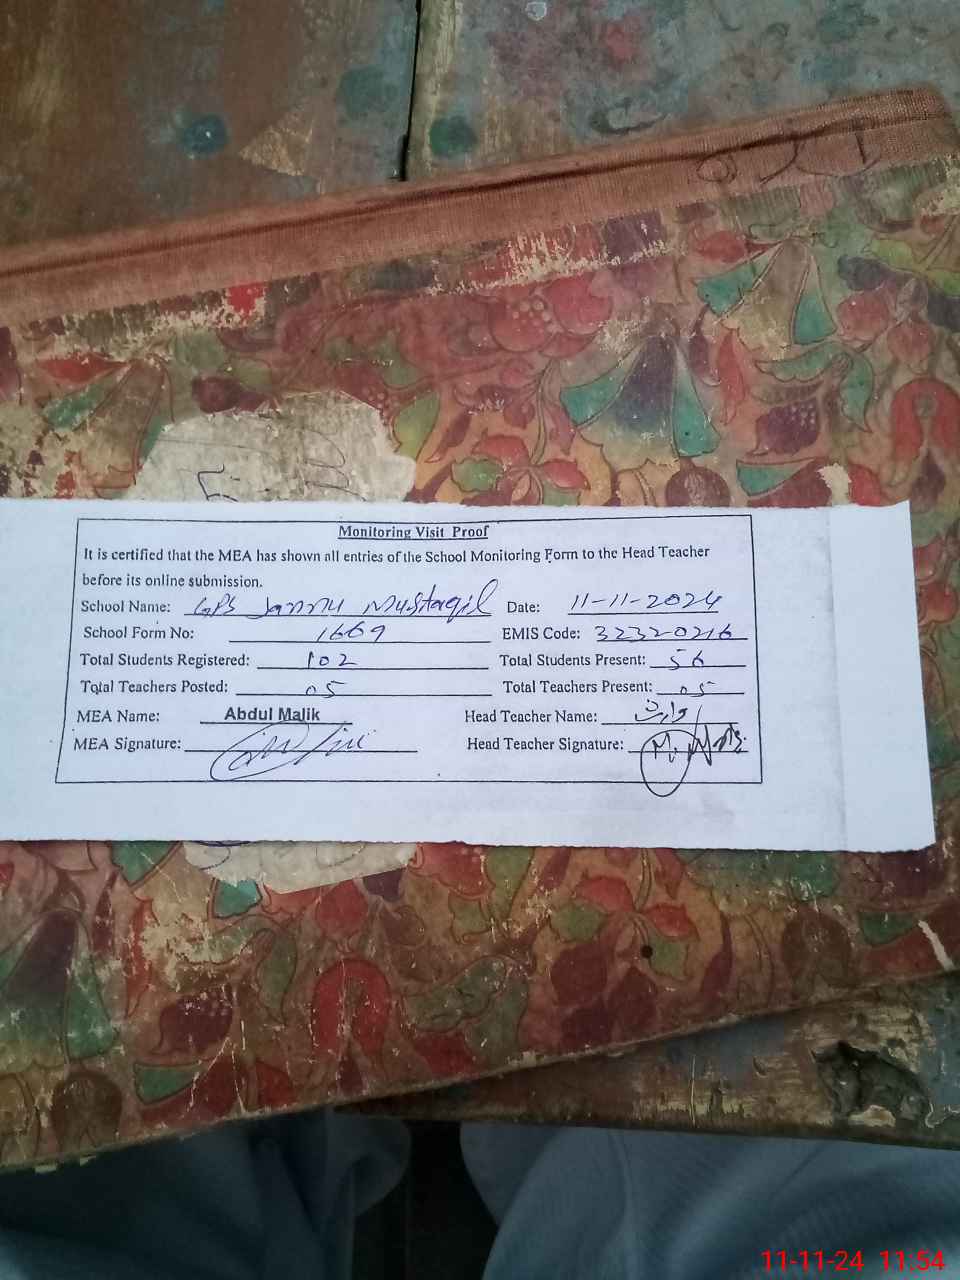 Monitoring Visit Proof
It is certified that the MEA has shown all entries of the School Monitoring Form to the Head Teacher
before its online submission.
School Name: GPS Jannu Mustaqil Date: 11-11-2024
School Form No: 1669 EMIS Code: 32320216
Total Students Registered: 102 Total Students Present: 56
Total Teachers Posted: 05 Total Teachers Present: 05
MEA Name: Abdul Malik Head Teacher Name: وارث
MEA Signature: Head Teacher Signature:
11-11-24 11:54